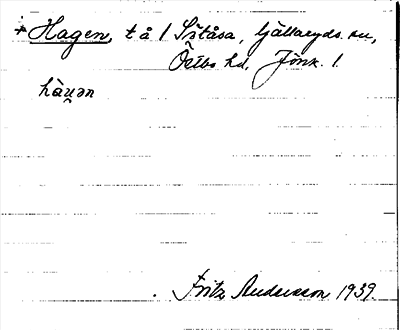 * Hagen, t å 1 Såtåsa, Gällaryds sn,
Östbo hd, Jönk. l.
hàu̯ən
Fritz Andersson 1939.